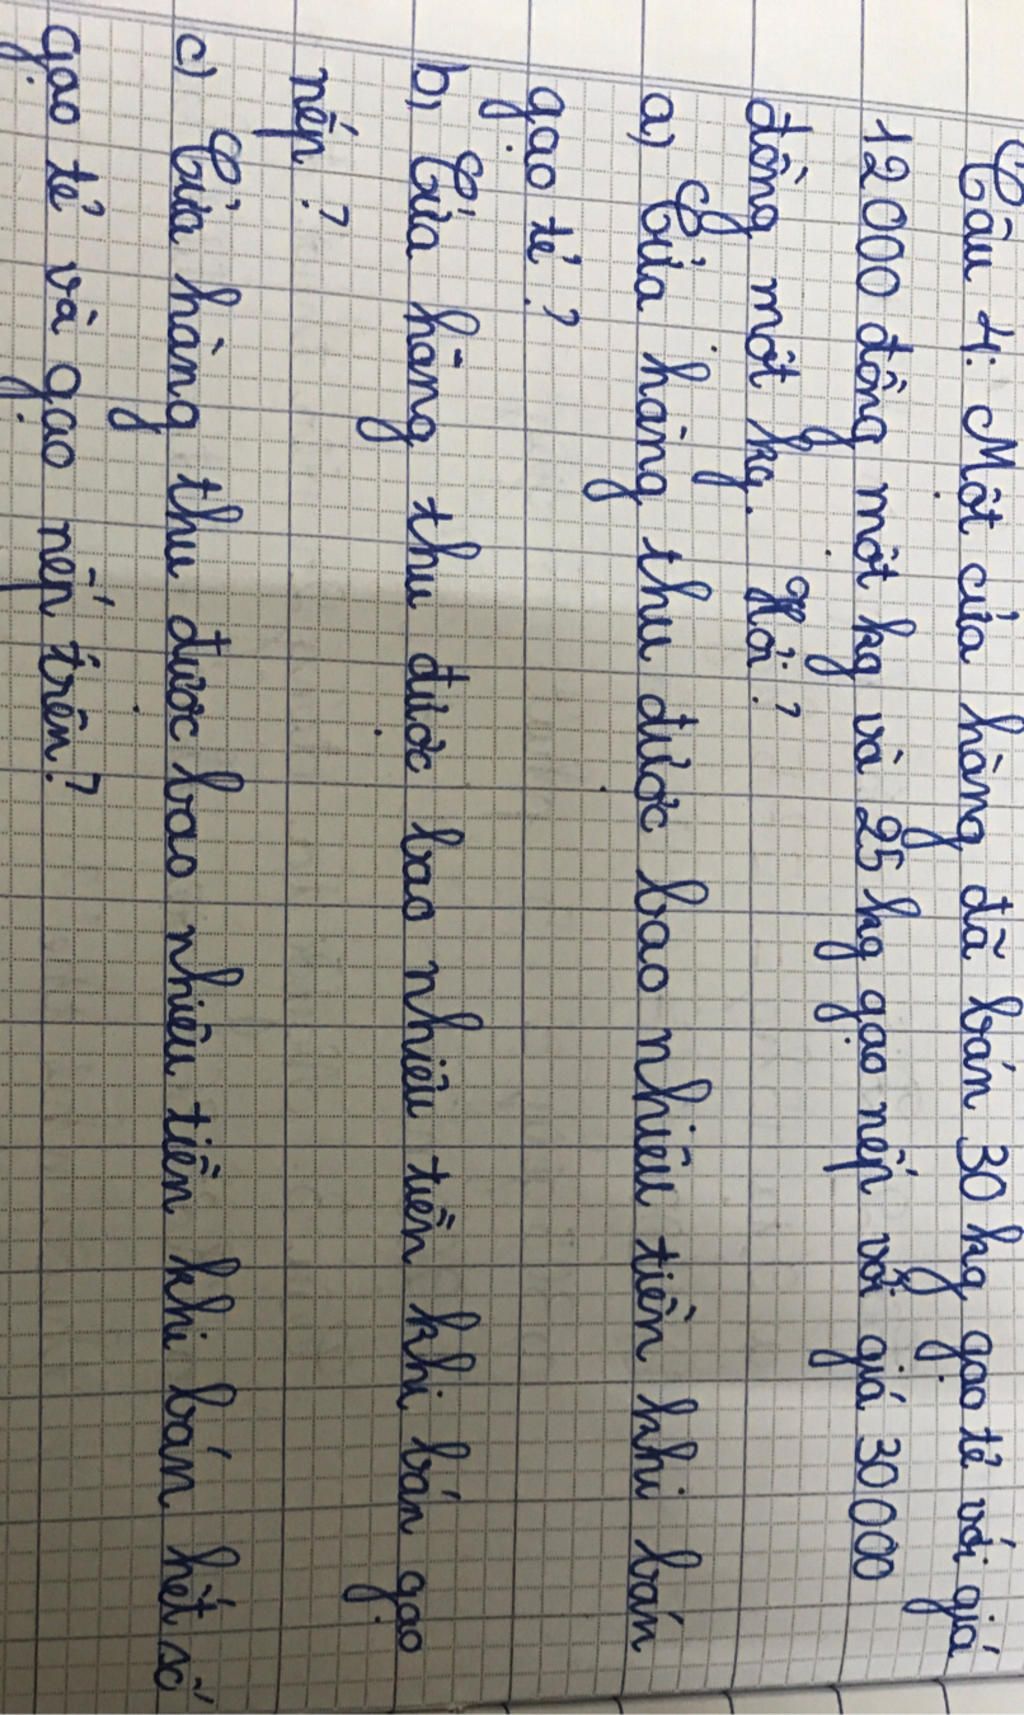 Câu 4: Một cửa hàng đã bán 30 kg gạo tẻ với giá
12000 đồng một kg và 25 kg gạo nếp với giá 30000
đồng một kg. Hỏi?
a) Cửa hàng thu được bao nhiêu tiền khi bán
gạo tẻ?
b) Cửa hàng thu được bao nhiêu tiền khi bán gạo
nếp?
c) Cửa hàng thu được bao nhiêu tiền khi bán hết số
gạo tẻ và gạo nếp trên?